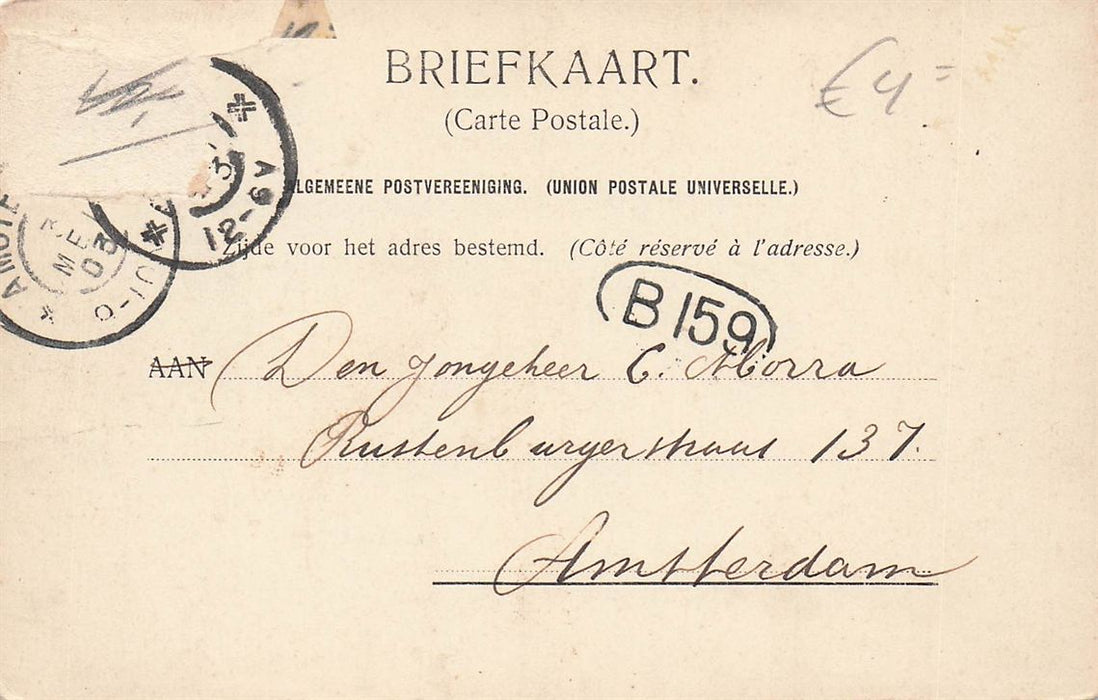 BRIEFKAART.
€ 4 =
(Carte Postale.)
ALGEMEENE POSTVEREENIGING. (UNION POSTALE UNIVERSELLE.)
Zijde voor het adres bestemd. (Côté réservé à l'adresse.)
12-6V
MEI
03
B 159
AAN Den Jongeheer C. Morra
Rustenburgerstraat 137.
Amsterdam